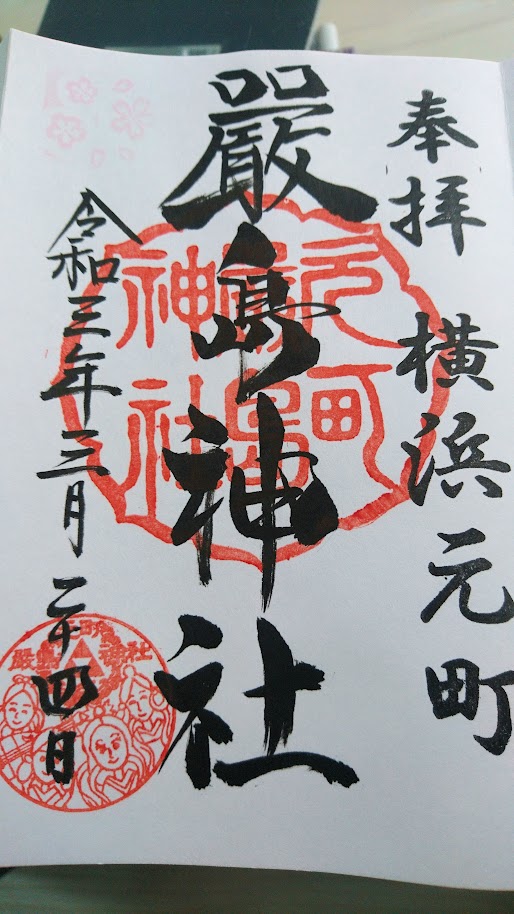 奉拝 横浜元町
嚴島神社
令和三年三月二十四日
元町
嚴島
神社
厳島神社